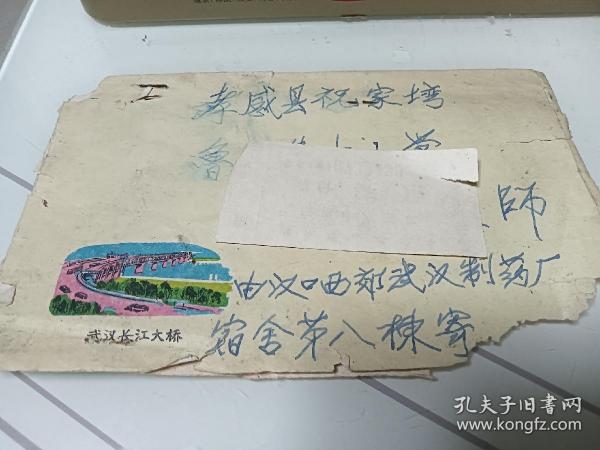 孝感县祝家塆
鲁
师
由汉口西郊武汉制药厂
宿舍第八栋寄
武汉长江大桥
孔夫子旧书网
www.kongfz.com